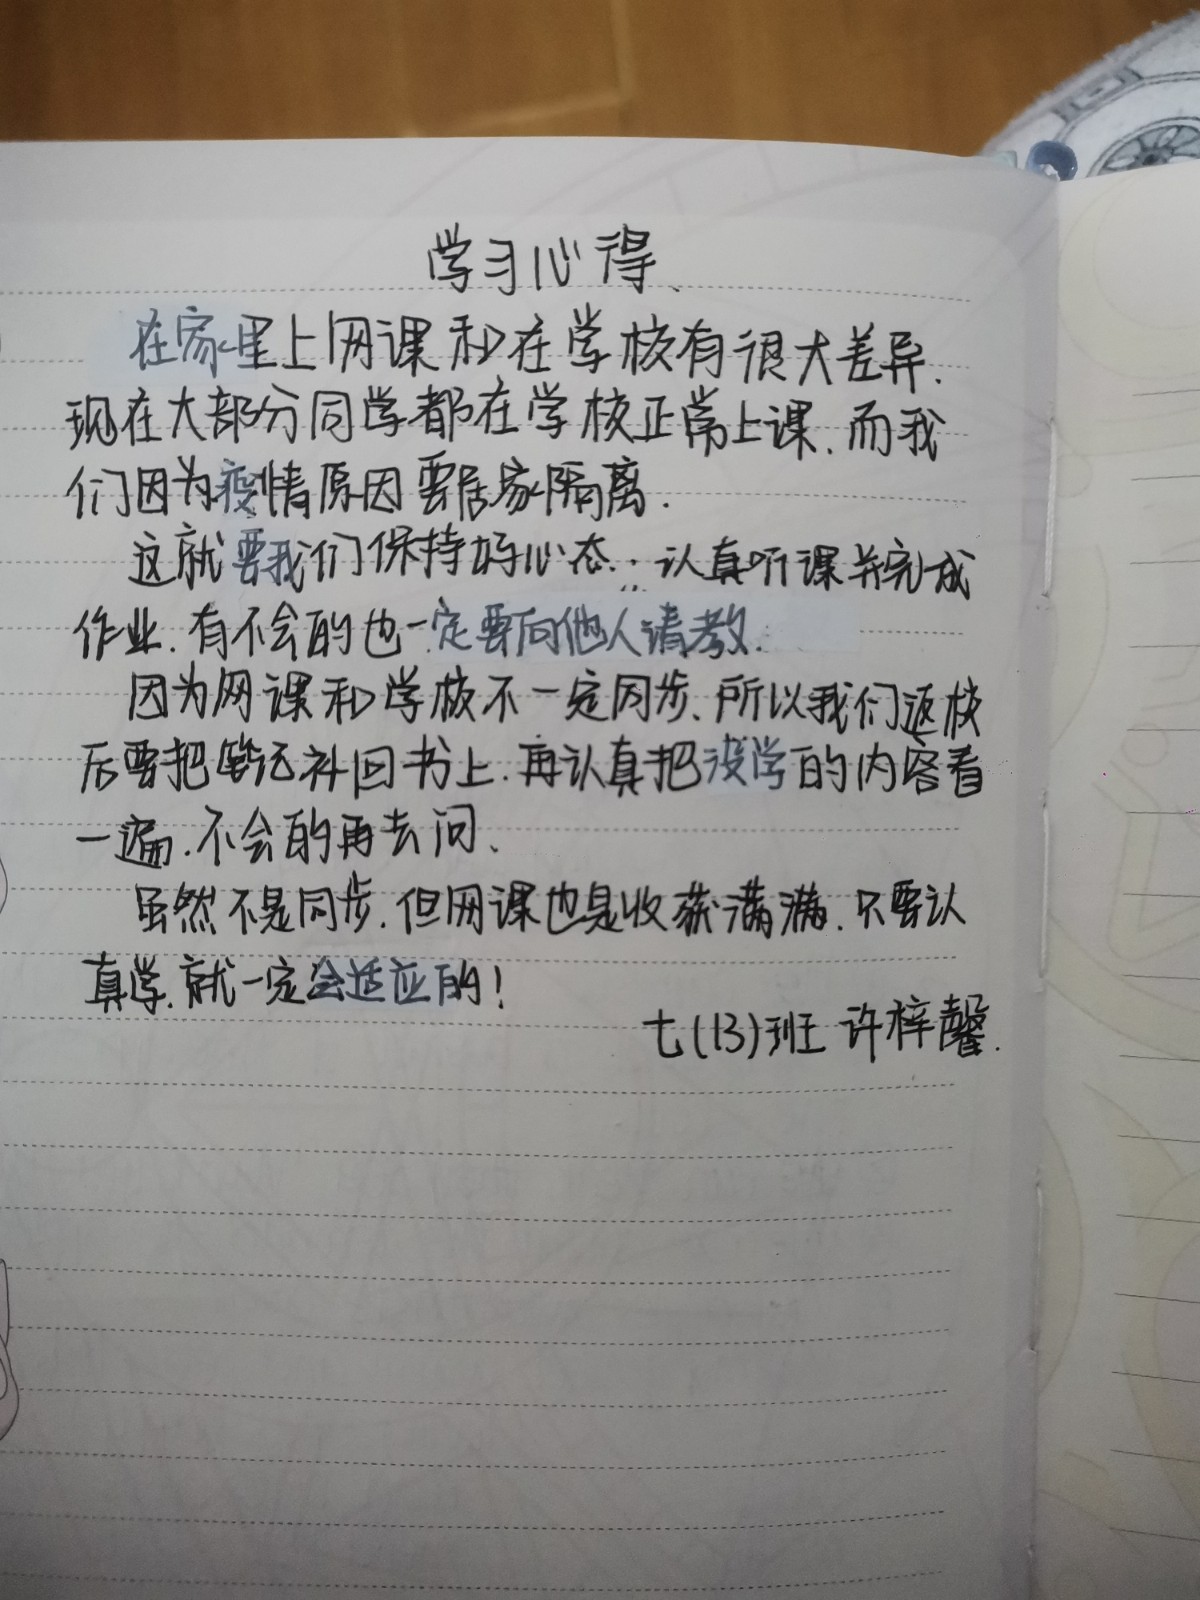 学习心得、
在家里上网课和在学校有很大差异.
现在大部分同学都在学校正常上课.而我
们因为疫情原因要居家隔离.
这就要我们保持好心态..认真听课并完成
作业.有不会的也一定要向他人请教.
因为网课和学校不一定同步、所以我们返校
后要把笔记补回书上.再认真把没学的内容看
一遍.不会的再去问、
虽然不是同步.但网课也是收获满满.只要认
真学.就一定会适应的！
七(13)班 许梓馨.